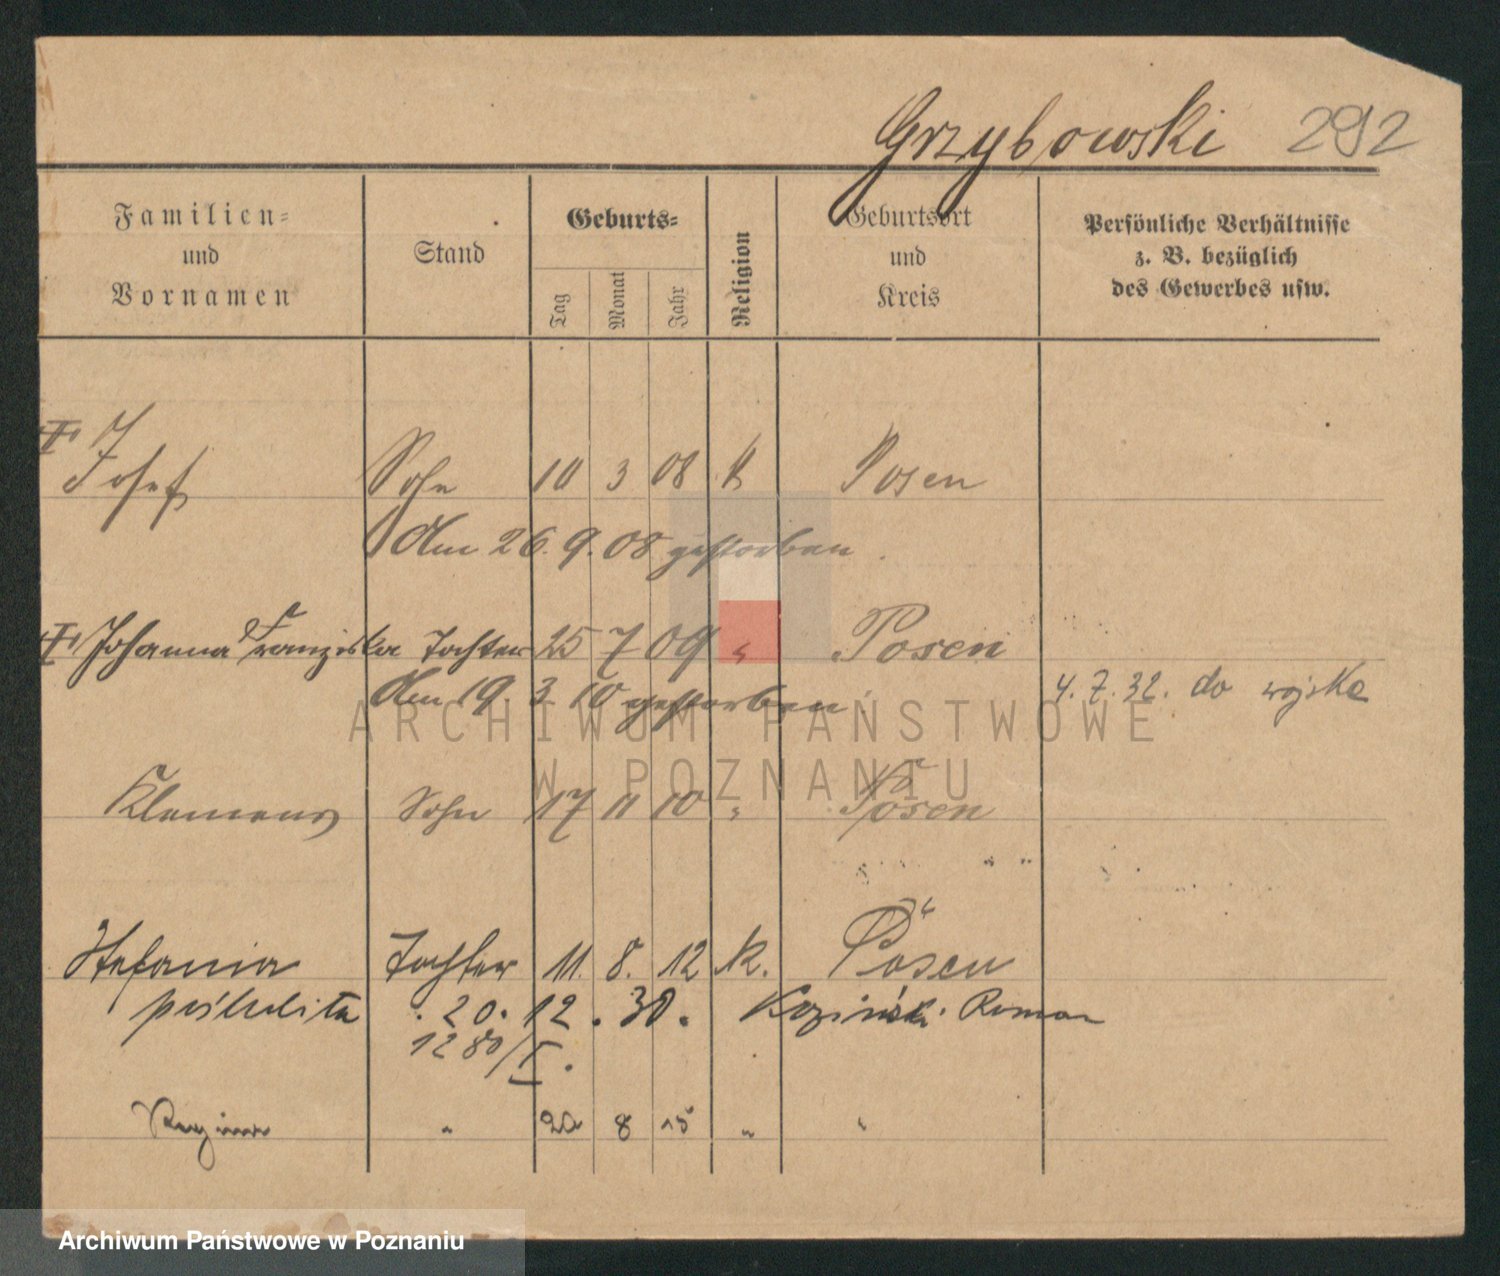 Grzybowski 292
Familien=
und
Vornamen
Stand
Geburts=
Tag
Monat
Jahr
Religion
Geburtsort
und
Kreis
Persönliche Verhältnisse
z. B. bezüglich
des Gewerbes usw.
Josef Sohn 10 3 08 K Posen
Am 26. 9. 08 gestorben
Johanna Franziska Tochter 25 7 09 " Posen
Am 19. 3. 10 gestorben 4. 7. 32. do wojska
Klemens Sohn 17 11 10 " Posen
ARCHIWUM PAŃSTWOWE
W POZNANIU
Stefania Tochter 11. 8. 12 K. Posen
poślubiła 20. 12. 30. Roman
1280/I.
" 20 8 15 " "
Archiwum Państwowe w Poznaniu